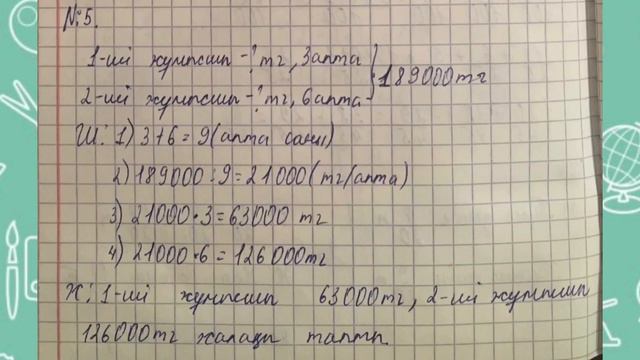 №5.
1-ші жұмысшы -? тг, 3 апта } 189000 тг
2-ші жұмысшы -? тг, 6 апта
Ш: 1) 3+6=9 (апта саны)
2) 189000:9=21000 (тг/апта)
3) 21000·3=63000 тг
4) 21000·6=126000 тг
Ж: 1-ші жұмысшы 63000 тг, 2-ші жұмысшы
126000 тг жалақы тапты.